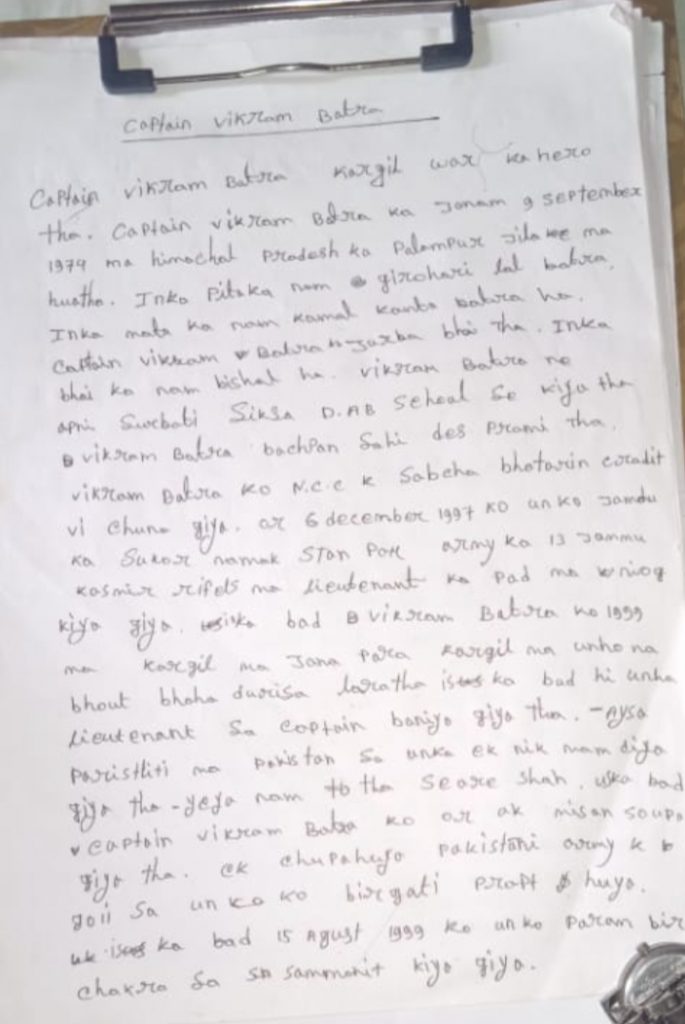 Captain vikram Batra
Captain vikram Batra Kargil war ka hero
tha. Captain vikram Batra ka Janam 9 september
1974 ma himachal Pradesh ka Palampur jila ma
huatha. Inka Pitaka nam girohari lal batra.
Inka mata ka nam kamal kanta batra ha.
Captain vikram Batra bhai tha. Inka
bhai ka nam bishal ha. vikram Batra na
apni Siksa D.AB scheal Se kiya tha
vikram Batra bachpan Sahi des Prami tha.
vikram Batra ko N.C.C k Sabcha bhatarin
vi chuna giya. ar 6 december 1997 ko unko
ka namak army ka 13 Jammu
kasmir rifels ma lieutenant ka Pad ma
kiya giya. iska bad vikram Batra ko 1999
ma kargil ma Jana Para kargil ma unho na
bhout laratha ka bad hi unha
lieutenant Sa Captain baniya giya tha. -Aysa
Paristhiti ma pakistan Sa unka ek nik nam diya
giya tha -yeya nam to tha Seare Shah. uska bad
captain vikram Batra ko or ak misan soupa
giya tha. ek chupahuya pakistani army k
goli Sa un ko birgati Prapt huya.
ka bad 15 Agust 1999 ko unko Param bir
chakra Sa sammanit kiya giya.